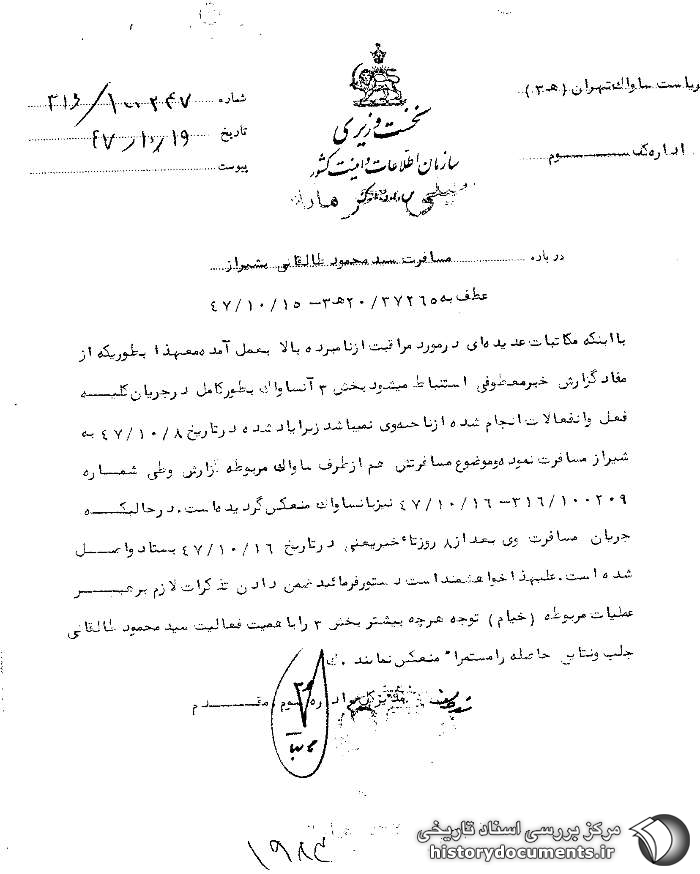 ریاست ساواک تهران (ﻫ ۳)
اداره کل سوم
نخست وزیری
سازمان اطلاعات و امنیت کشور
شماره ۳۱۶/۱۰۰۲۴۷
تاریخ ۴۷/۱۰/۱۹
پیوست
خیلی محرمانه
درباره مسافرت سید محمود طالقانی بشیراز
عطف به ۲۰/۳۷۲۶۵ﻫ۳ - ۴۷/۱۰/۱۵
با اینکه مکاتبات عدیده‌ای در مورد مراقبت از نامبرده بالا بعمل آمده معهذا بطوریکه از
مفاد گزارش خبر معطوفی استنباط میشود بخش ۳ آنساواک بطور کامل در جریان کلیه
فعل و انفعالات انجام شده از ناحیه وی نمیباشد زیرا یاد شده در تاریخ ۴۷/۱۰/۸ به
شیراز مسافرت نموده و موضوع مسافرتش هم از طرف ساواک مربوطه گزارش وطی شماره
۳۱۶/۱۰۰۲۰۹ - ۴۷/۱۰/۱۶ نیز بانساواک منعکس گردیده است. در حالیکه
جریان مسافرت وی بعد از ۸ روز تاءخیر یعنی در تاریخ ۴۷/۱۰/۱۶ بستاد واصل
شده است. علیهذا خواهشمند است دستور فرمائید ضمن دادن تذکرات لازم برهبر
عملیات مربوطه (خیام) توجه هرچه بیشتر بخش ۳ را باهمیت فعالیت سید محمود طالقانی
جلب و نتایج حاصله را مستمرا" منعکس نمایند. ک
مدیر کل اداره سوم. مقدم
۱۹۸۴
مرکز بررسی اسناد تاریخی
historydocuments.ir